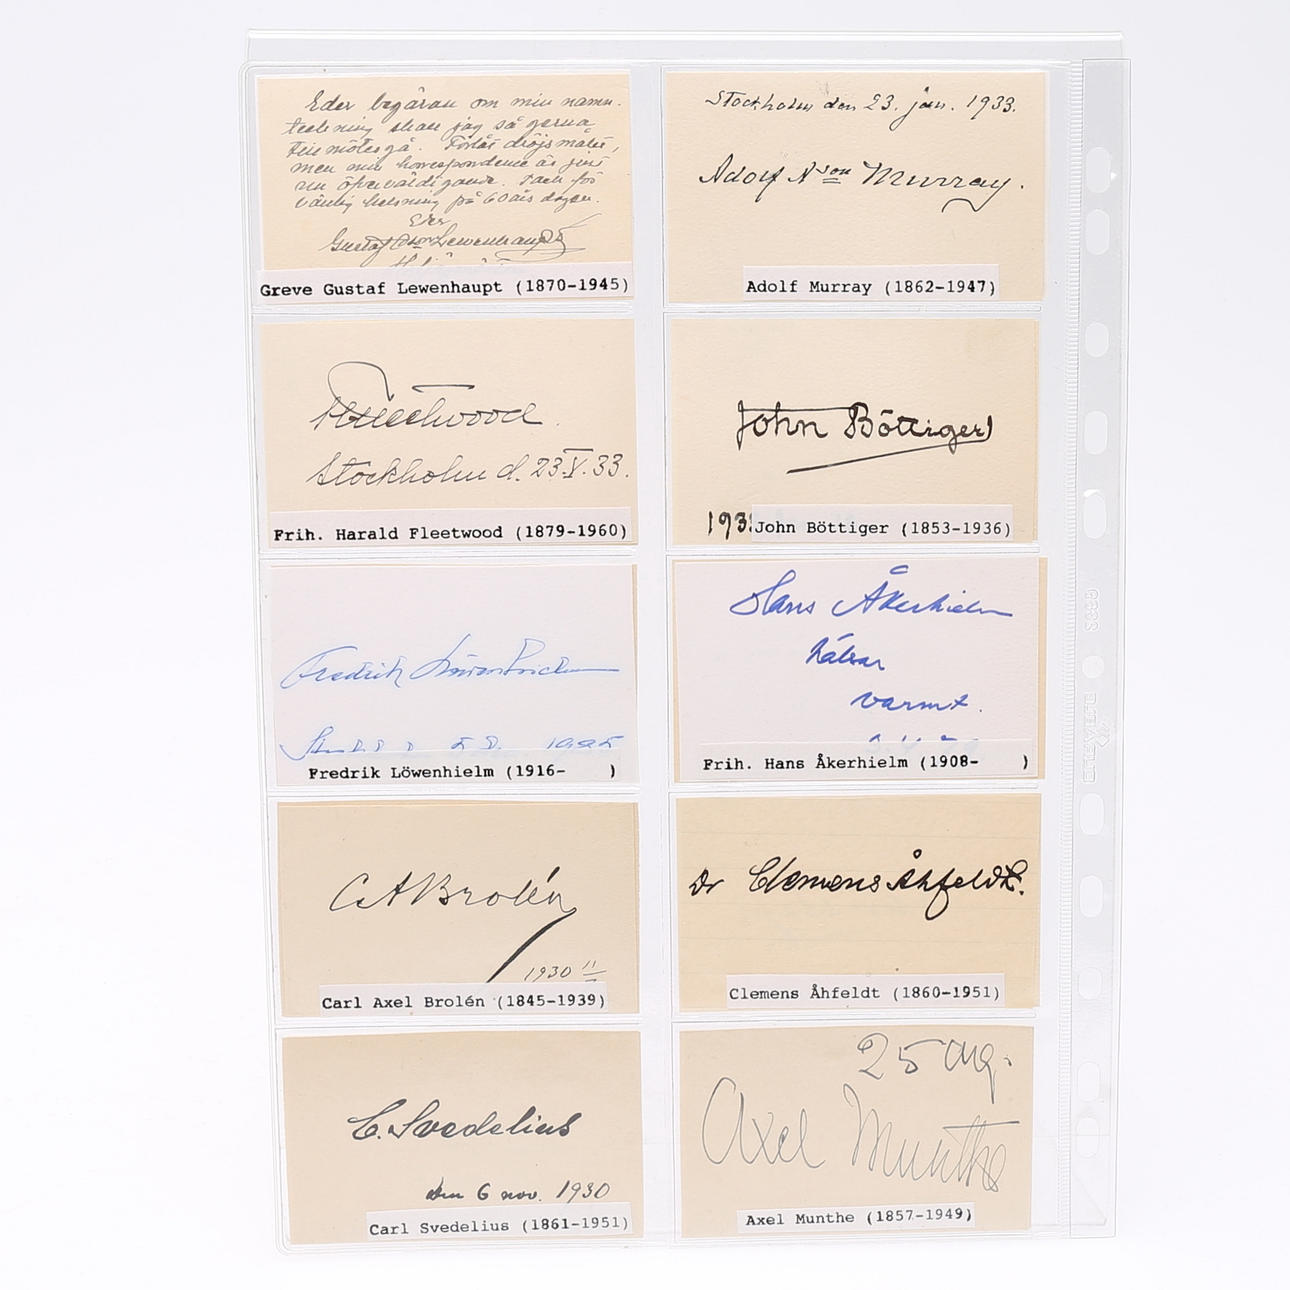 Eder begäran om min namn-
teckning skall jag så gerna
tillmötesgå. Förlåt dröjsmålet,
men min korrespondens är just
nu öfverväldigande. Tack för
vänlig helsning på 60 års dagen.
Eder
Gustaf Lewenhaupt
Greve Gustaf Lewenhaupt (1870-1945)
Stockholm den 23. jan. 1933.
Adolf A:son Murray.
Adolf Murray (1862-1947)
HFleetwood
Stockholm d. 23.V.33.
Frih. Harald Fleetwood (1879-1960)
John Böttiger
193
John Böttiger (1853-1936)
Fredrik Löwenhielm
Fredrik Löwenhielm (1916- )
Hans Åkerhielm
hälsar
varmt.
Frih. Hans Åkerhielm (1908- )
C A Brolén
1930 11
Carl Axel Brolén (1845-1939)
Dr Clemens Åhfeldt.
Clemens Åhfeldt (1860-1951)
C. Svedelius
den 6 nov. 1930
Carl Svedelius (1861-1951)
25 Aug.
Axel Munthe
Axel Munthe (1857-1949)